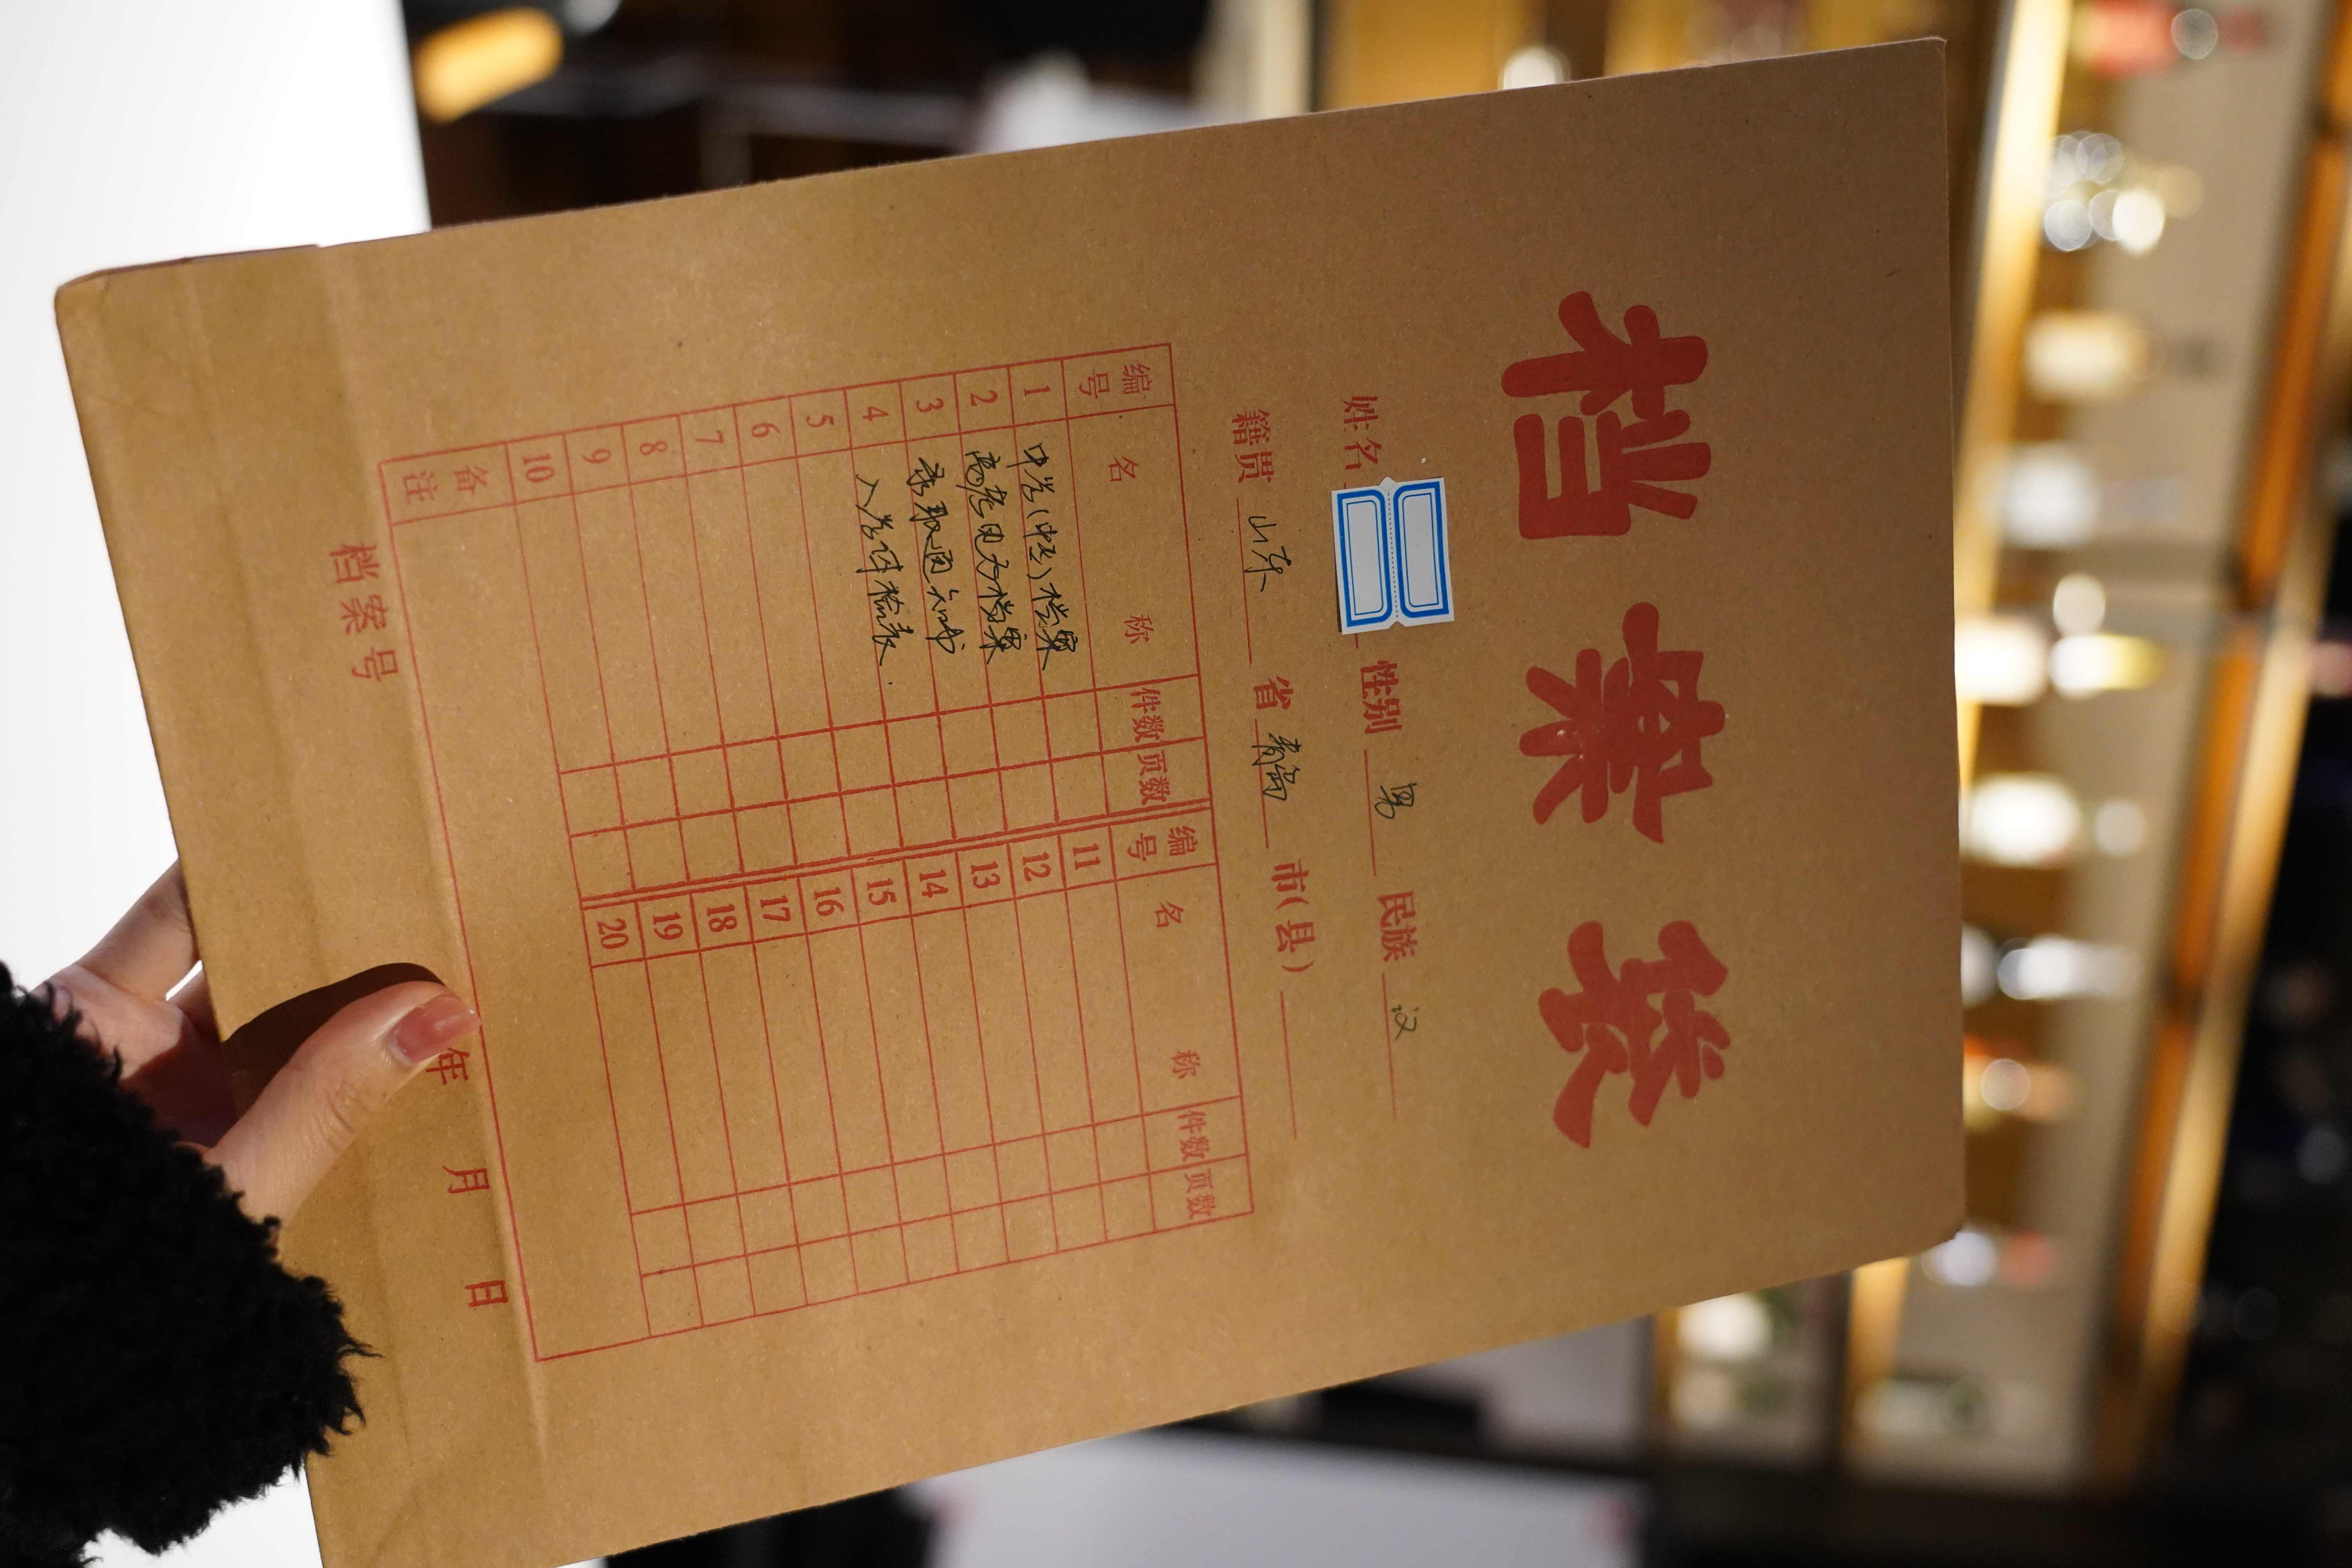 档案袋
姓名 性别 男 民族 汉
籍贯 山东 省 青岛 市(县)
编号 名称 件数 页数 编号 名称 件数 页数
1 中学(中专)档案 11
2 高考电子档案 12
3 录取通知书 13
4 入学体检表 14
5 15
6 16
7 17
8 18
9 19
10 20
备注
档案号 年 月 日